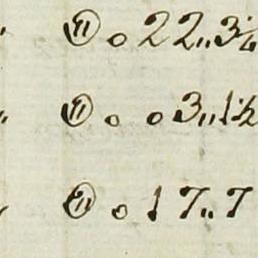 " ⑪ 0 22 " 3¼
" ⑪ 0 0 3 " 1½
" ⑪ 0 17 " 7